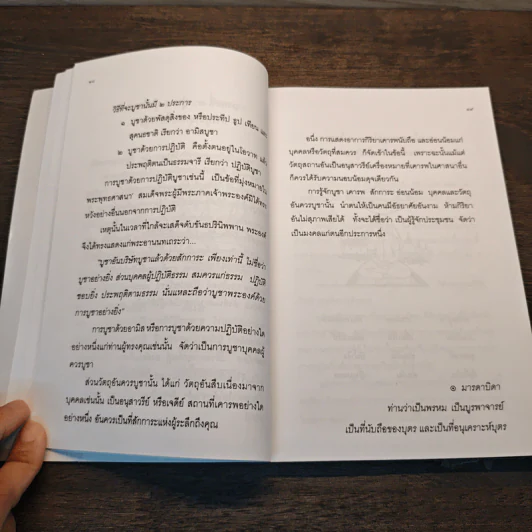 วิธีที่จะบูชานั้นมี ๒ ประการ
๑ บูชาด้วยพัสดุสิ่งของ หรือประทีป ธูป เทียน และ
สุคนธชาติ เรียกว่า อามิสบูชา
๒ บูชาด้วยการปฏิบัติ คือตั้งตนอยู่ในโอวาท แล้ว
ประพฤติตนเป็นธรรมจารี เรียกว่า ปฏิบัติบูชา
การบูชาด้วยการปฏิบัติบูชาเช่นนี้ เป็นข้อที่มุ่งหมายใน
พระพุทธศาสนา สมเด็จพระผู้มีพระภาคเจ้าพระองค์มิได้ทรง
หวังอย่างอื่นนอกจากการปฏิบัติ
เหตุนั้นในเวลาที่ใกล้จะเสด็จดับขันธปรินิพพาน พระองค์
จึงได้ทรงแสดงแก่พระอานนทเถระว่า...
"บูชาอันบริษัทบูชาแล้วด้วยสักการะ เพียงเท่านี้ ไม่ชื่อว่า
บูชาอย่างยิ่ง ส่วนบุคคลผู้ปฏิบัติธรรม สมควรแก่ธรรม ปฏิบัติ
ชอบยิ่ง ประพฤติตามธรรม นั่นแหละถือว่าบูชาพระองค์ด้วย
การบูชาอย่างยิ่ง"
การบูชาด้วยอามิส หรือการบูชาด้วยความปฏิบัติอย่างใด
อย่างหนึ่งแก่ท่านผู้ทรงคุณเช่นนั้น จัดว่าเป็นการบูชาบุคคลผู้
ควรบูชา
ส่วนวัตถุอันควรบูชานั้น ได้แก่ วัตถุอันสืบเนื่องมาจาก
บุคคลเช่นนั้น เป็นอนุสาวรีย์ หรือเจดีย์ สถานที่เคารพอย่างใด
อย่างหนึ่ง อันควรเป็นที่สักการะแห่งผู้ระลึกถึงคุณ
อนึ่ง การแสดงอาการกิริยาเคารพนับถือ และอ่อนน้อมแก่
บุคคลหรือวัตถุที่สมควร ก็จัดเข้าในข้อนี้ เพราะฉะนั้นแม้แต่
วัตถุสถานอันเป็นอนุสาวรีย์เครื่องหมายที่เคารพในศาสนาอื่น
ก็ควรได้รับความนอบน้อมดุจเดียวกัน
การรู้จักบูชา เคารพ สักการะ อ่อนน้อม บุคคลและวัตถุ
อันควรบูชานั้น นำตนให้เป็นคนมีอัธยาศัยอันงาม ห้ามกิริยา
อันไม่สุภาพเสียได้ ทั้งจะได้ชื่อว่า เป็นผู้รู้จักประชุมชน จัดว่า
เป็นมงคลแก่ตนอีกประการหนึ่ง
๏ มารดาบิดา
ท่านว่าเป็นพรหม เป็นบูรพาจารย์
เป็นที่นับถือของบุตร และเป็นที่อนุเคราะห์บุตร